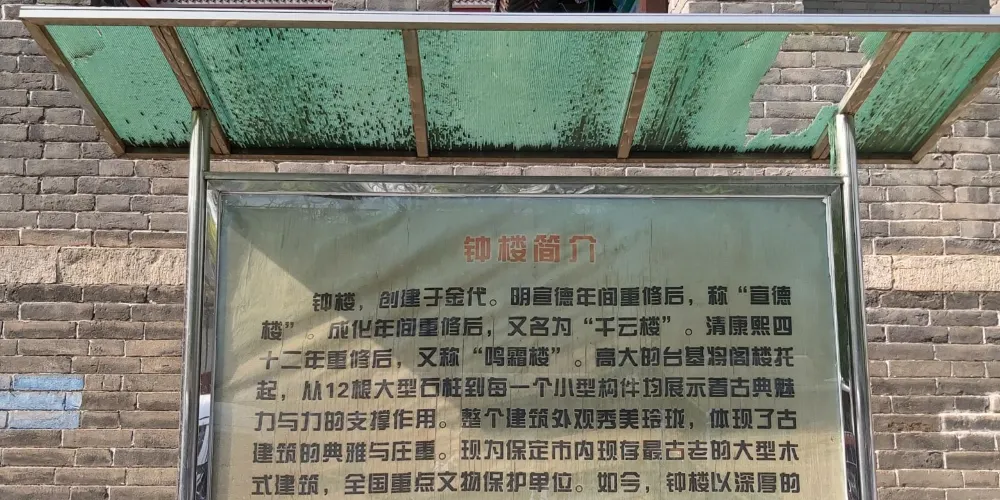 钟楼简介
钟楼，创建于金代。明宣德年间重修后，称“宣德
楼”。成化年间重修后，又名为“千云楼”。清康熙四
十二年重修后，又称“鸣霜楼”。高大的台基将阁楼托
起，从12根大型石柱到每一个小型构件均展示着古典魅
力与力的支撑作用。整个建筑外观秀美玲珑，体现了古
建筑的典雅与庄重。现为保定市内现存最古老的大型木
式建筑，全国重点文物保护单位。如今，钟楼以深厚的